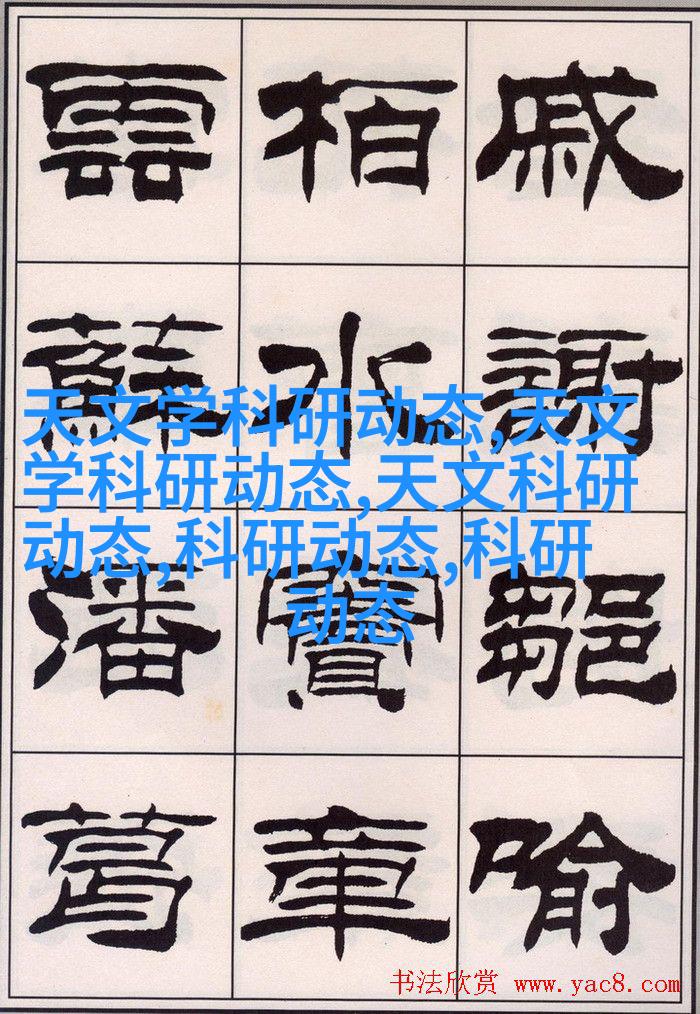 戚謝鄒喻
柏水竇章
雲蘇潘葛
天文学科研动态,天文
学科研动态,天文科研
动态,科研动态,科研
动态
书法欣赏 www.yac8.com